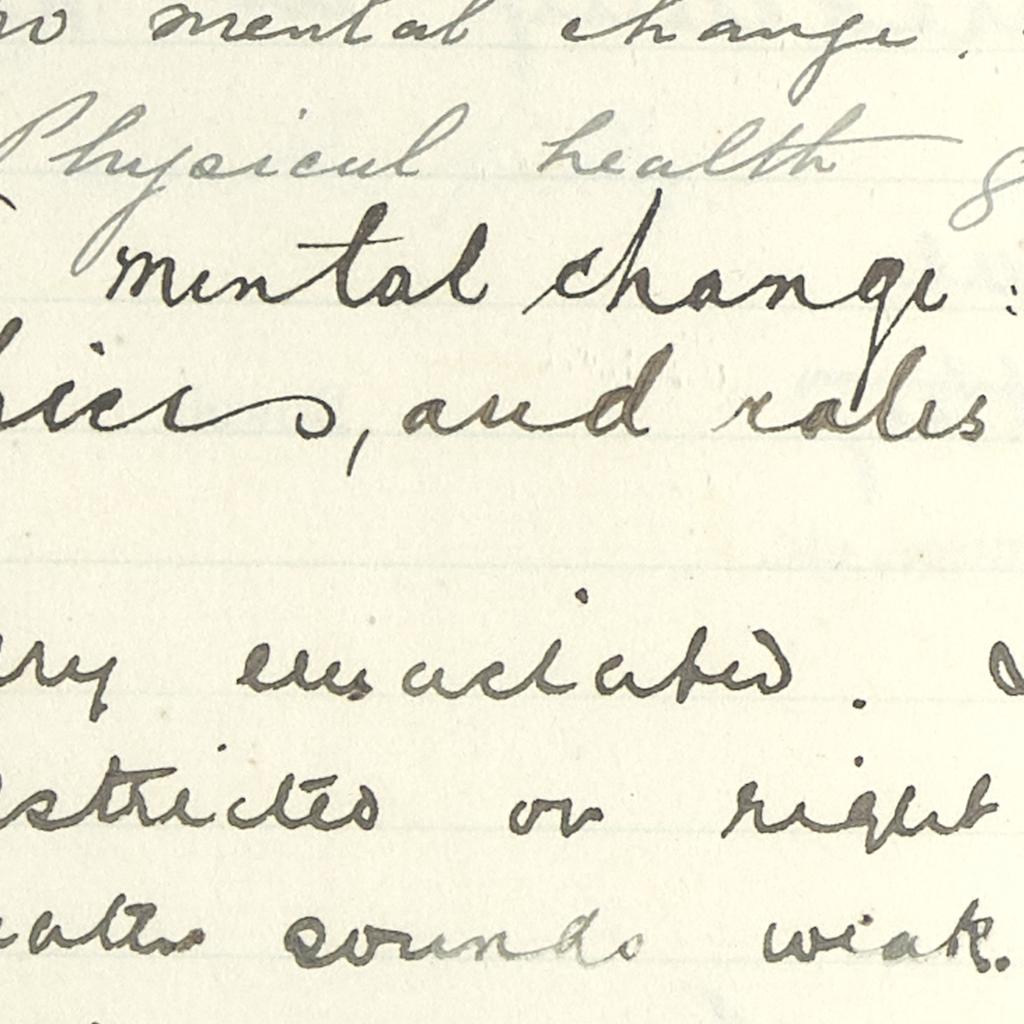 no mental change.
Physical health
mental change:
apices, and rales
very emaciated.
restricted on right
breath sounds weak.